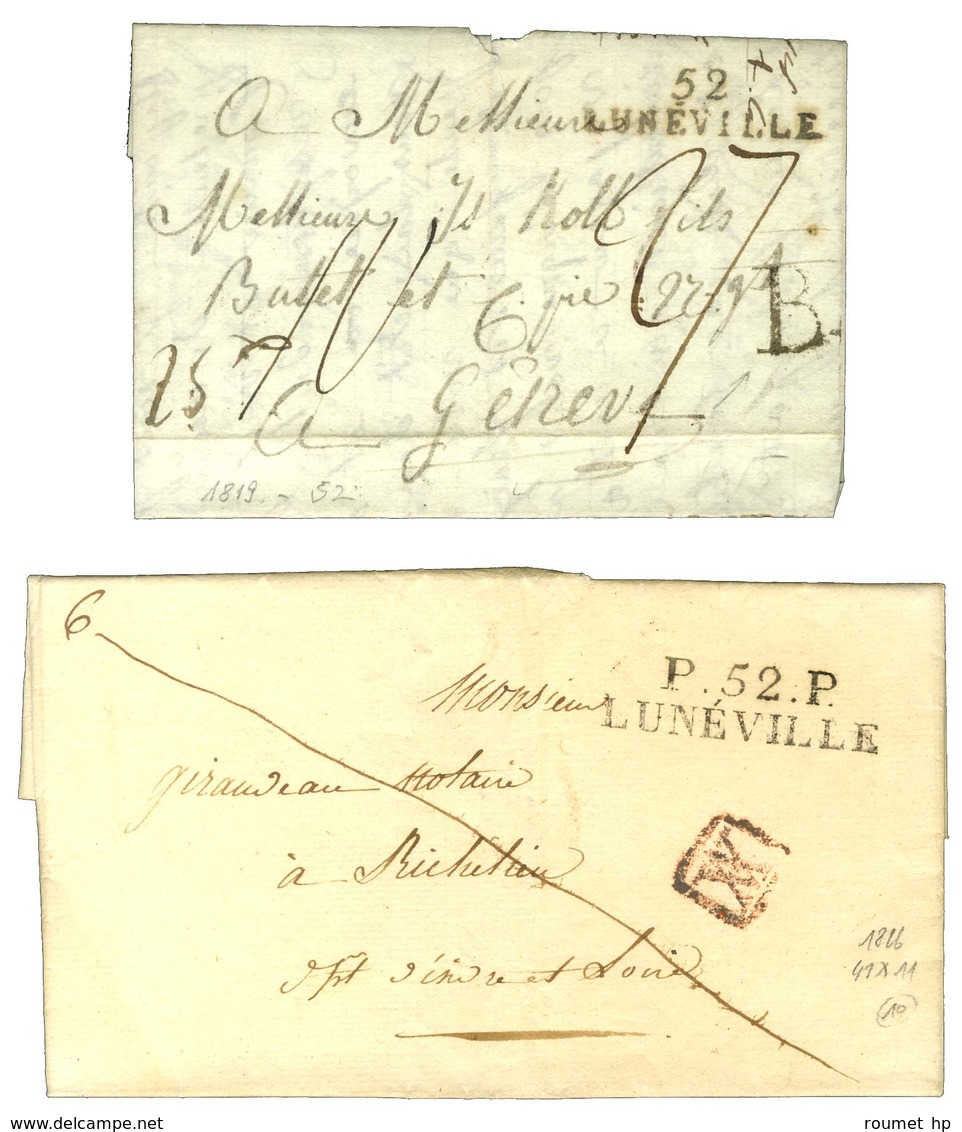 52
LUNÉVILLE
A Messieurs
Messieurs Js Kolb fils
Butet et C.pie 22. 9
B.
25
7
27
A Genève
1819 - 52
6
P.52.P.
LUNÉVILLE
Monsieur
Giraudeau Notaire
à Richelieu
dpt d'indre et Loire
1826
41 X 11
10
www.delcampe.net
roumet hp